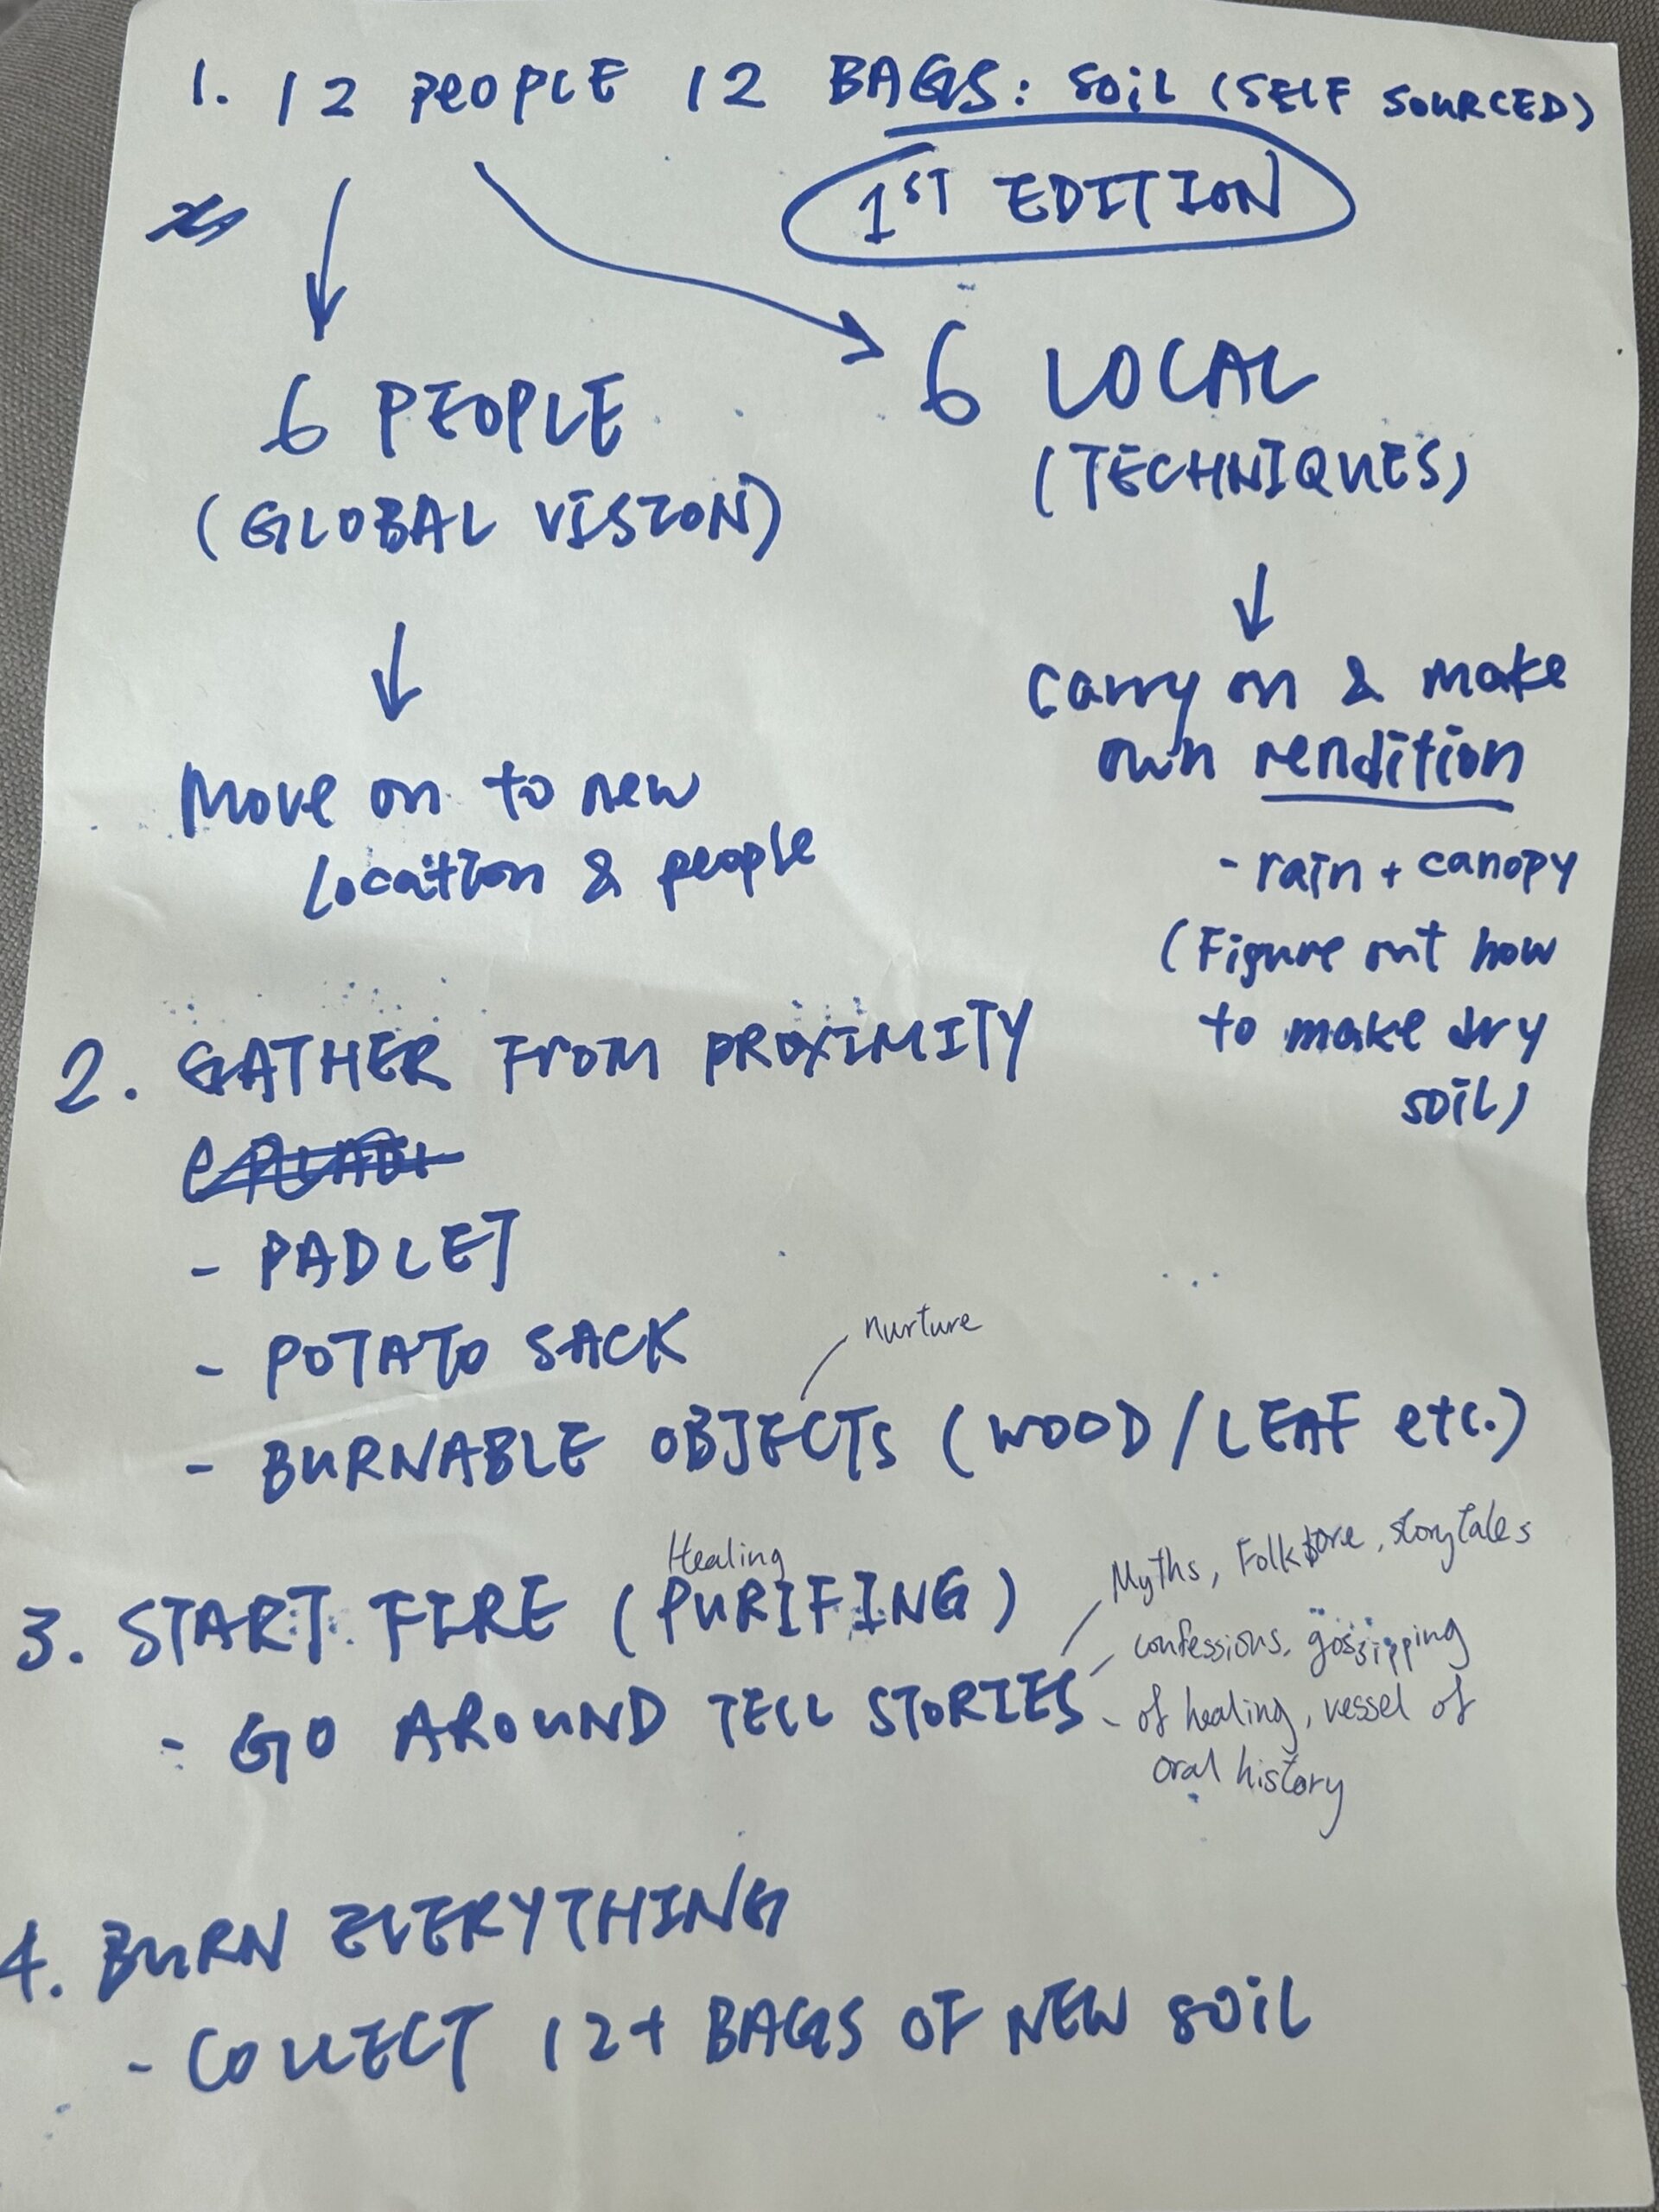 1. 12 PEOPLE 12 BAGS: SOIL (SELF SOURCED)
1ST EDITION
6 PEOPLE
(GLOBAL VISION)
Move on to new
location & people
6 LOCAL
(TECHNIQUES)
Carry on & make
own rendition
- rain + canopy
(Figure out how
to make dry
soil)
2. GATHER FROM PROXIMITY
- PADLET
- POTATO SACK
nurture
- BURNABLE OBJECTS (WOOD/LEAF etc.)
Healing
3. START FIRE (PURIFING)
- GO AROUND TELL STORIES
Myths, Folklore, storytales
confessions, gossipping
- of healing, vessel of
oral history
4. BURN EVERYTHING
- COLLECT 12+ BAGS OF NEW SOIL